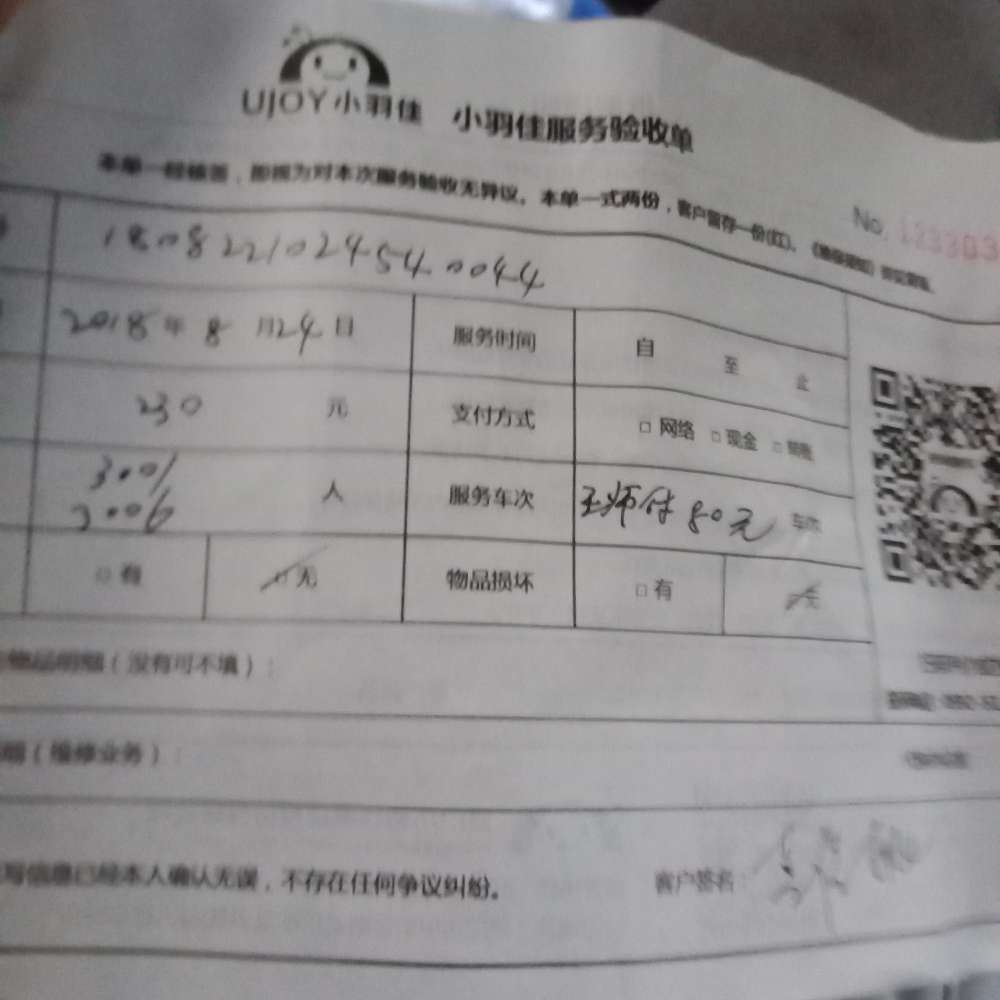 UJOY小羽佳 小羽佳服务验收单
本单一经签署，即视为对本次服务验收无异议。本单一式两份，客户留存一份(红)、
No. 123303
180822102454 0044
2018年8月24日 服务时间 自 至 止
230 元 支付方式 □ 网络 □ 现金 □
3001
2006 人 服务车次 王师付80元 车次
□ 有 □ 无 物品损坏 □ 有 □ 无
物品明细（没有可不填）：
（维修业务）：
写信息已经本人确认无误，不存在任何争议纠纷。 客户签名：